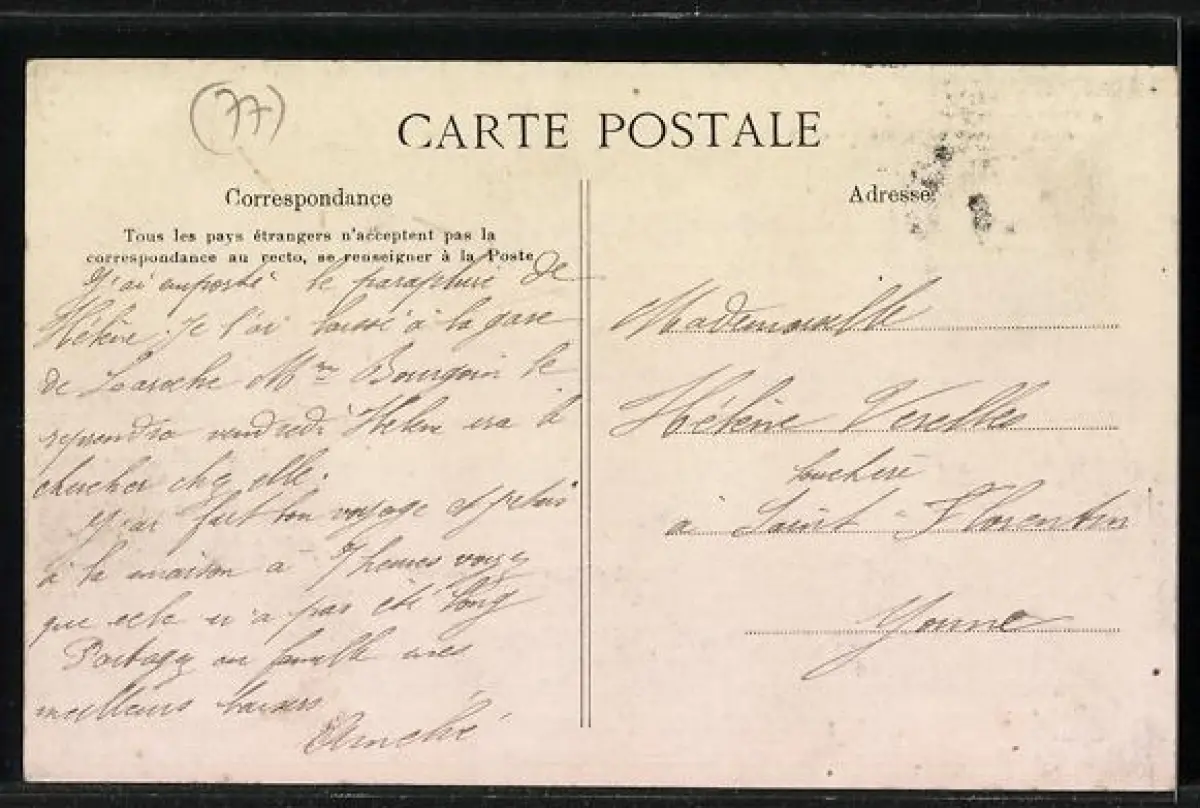 (77)
CARTE POSTALE
Correspondance
Tous les pays étrangers n'acceptent pas la
correspondance au recto, se renseigner à la Poste
J'ai emporté le parapluie de
Hélène. Je l'ai laissé à la gare
de Laroche Mme Bourgoin le
reprendra vendredi Helene ira le
chercher chez elle.
J'ai fait bon voyage et j'etais
à la maison à 7 heures voyez
que cela n'a pas été long
Partagez en famille mes
meilleurs baisers
Adresse
Mademoiselle
Hélène
à Saint-Florentin
Yonne